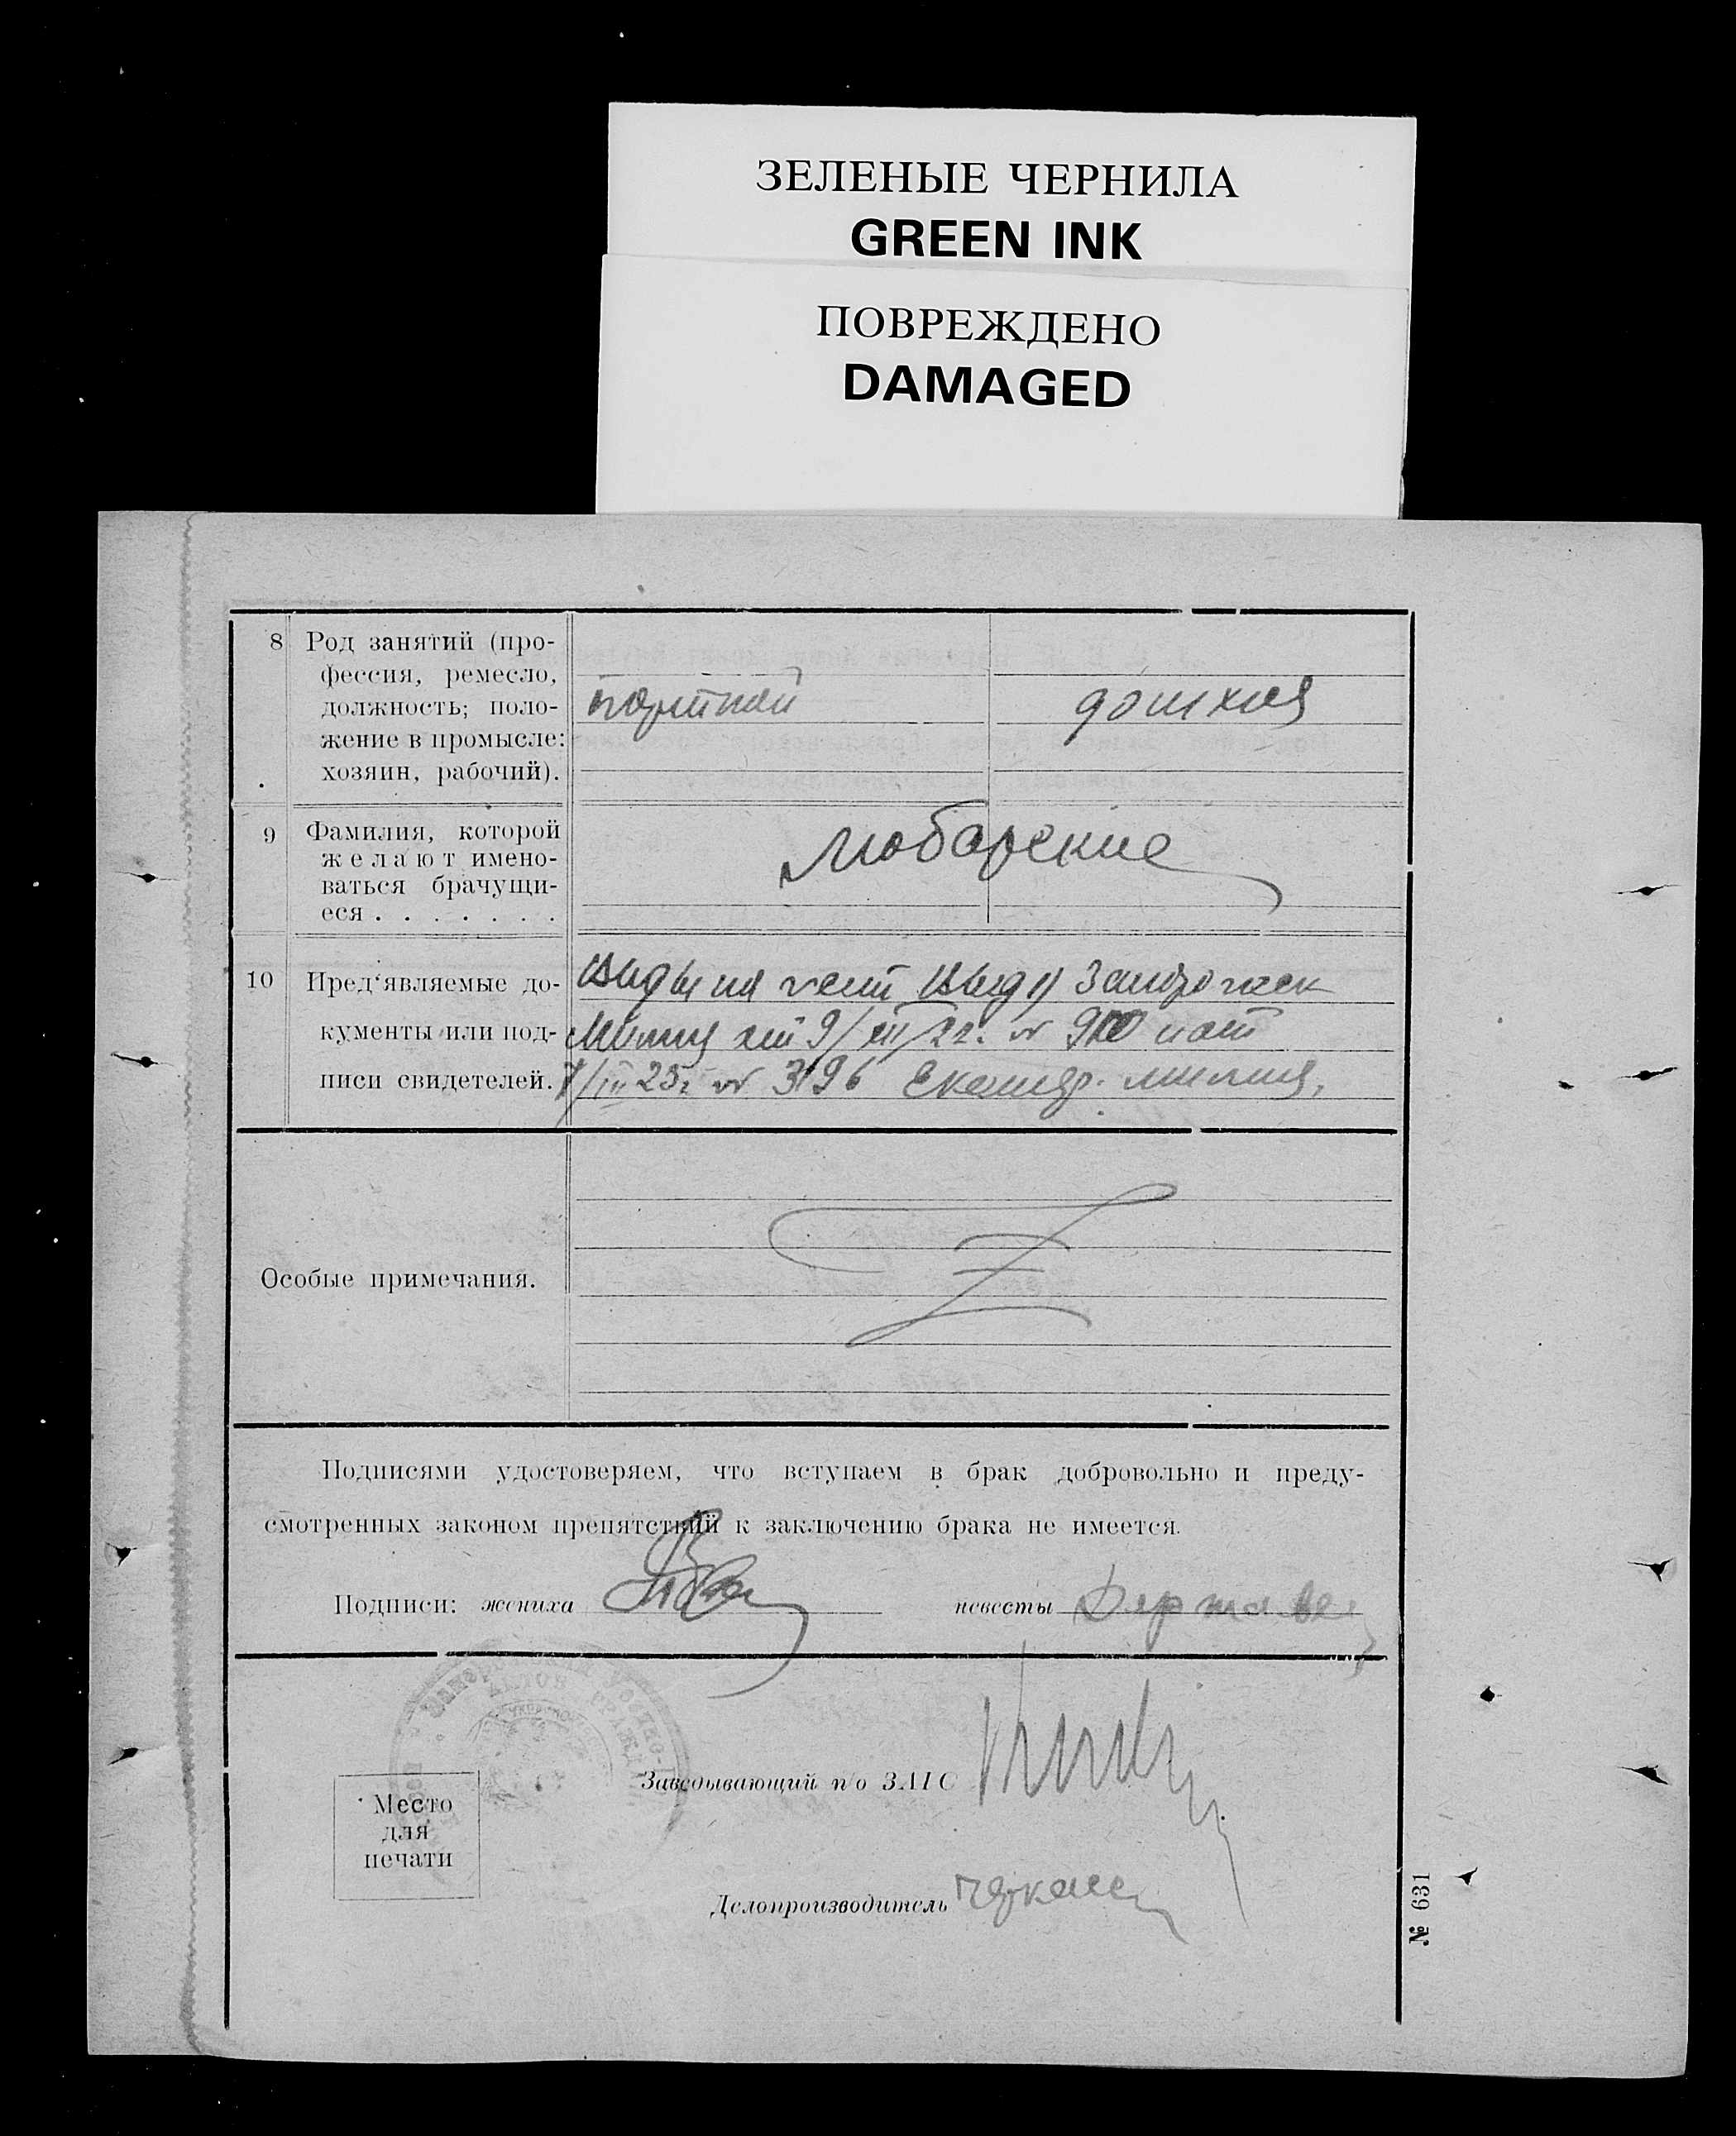 ЗЕЛЕНЫЕ ЧЕРНИЛА
GREEN INK
ПОВРЕЖДЕНО
DAMAGED
8 Род занятий (про-
фессия, ремесло,
должность; поло-
жение в промысле:
хозяин, рабочий).
портной
домхоз
9 Фамилия, которой
желают имено-
ваться брачущи-
еся . . . . . . .
Любарские
10 Пред‘являемые до-
кументы или под-
писи свидетелей.
Виды на жит выд
9/III/22. №
7/III 25г № 3196 Екатер. милиц.
Особые примечания.
Подписями удостоверяем, что вступаем в брак добровольно и преду-
смотренных законом препятствий к заключению брака не имеется.
Подписи: жениха невесты
Заведывающий п/о ЗАГС
Место
для
печати
Делопроизводитель
№ 631